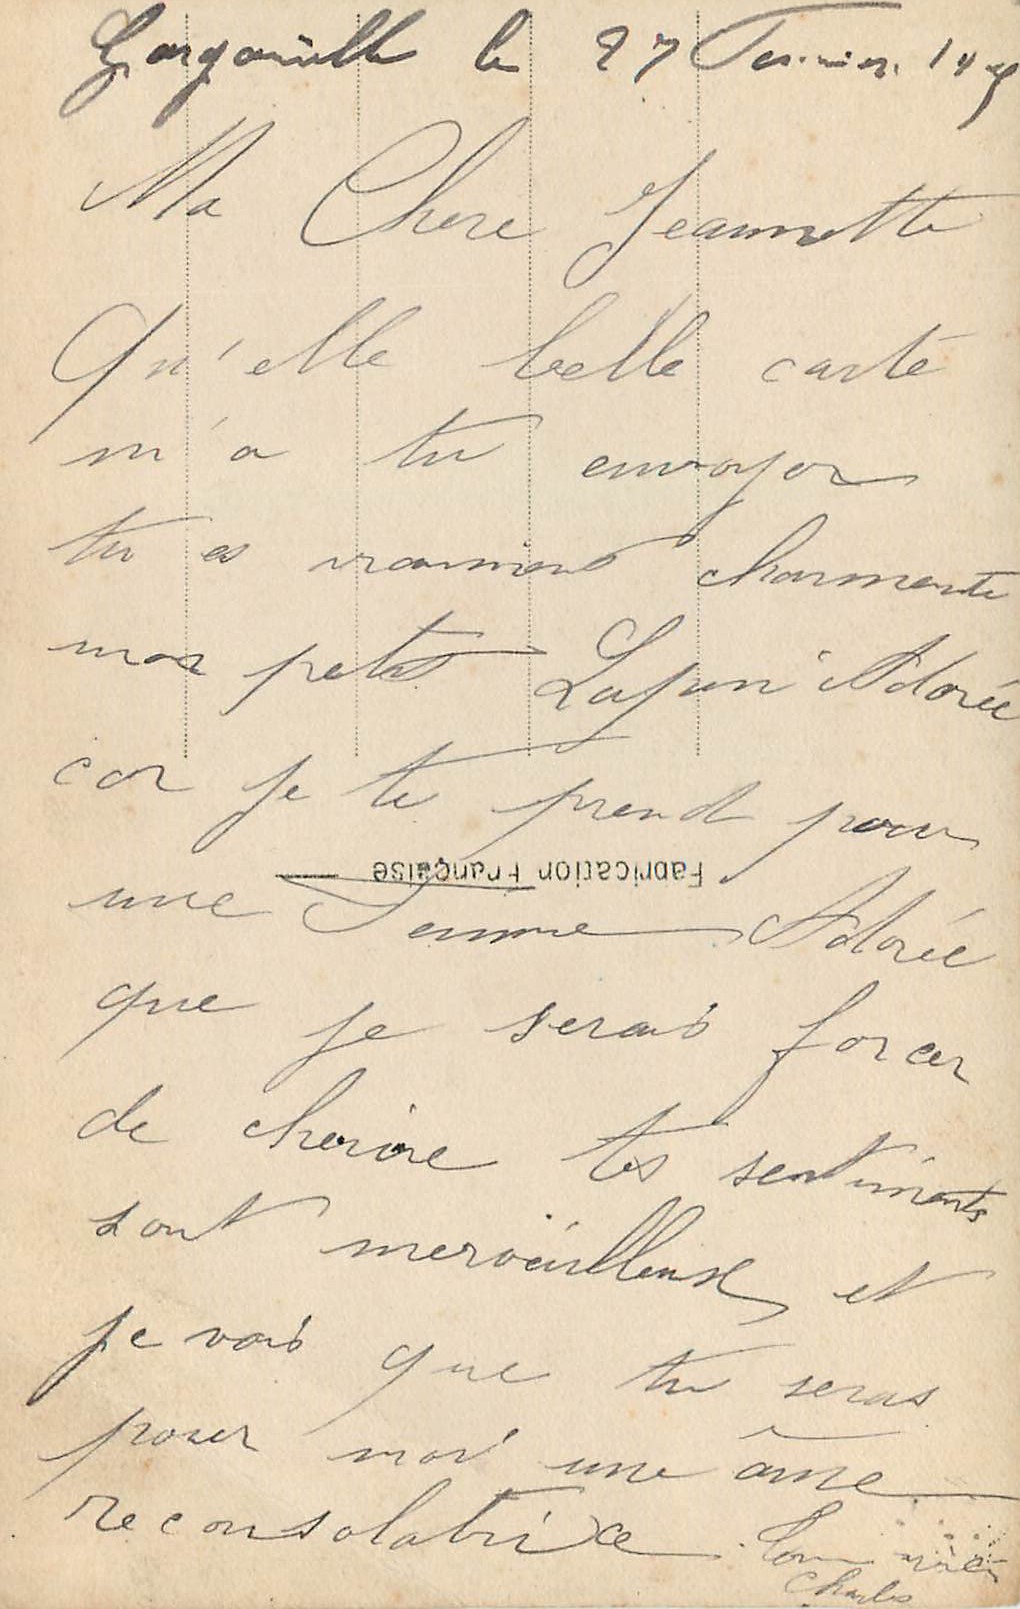 le 27
Ma Chere Jeannette
Qu'elle belle carte
m'a tu envoyer
tu es vraiment charmante
mon petit Lapin Adorée
car je te prend pour
Fabrication Française
une Femme Adorée
que je serais forcer
de cherire tes sentiments
sont merveilleuse et
je vois que tu seras
pour moi une âme
reconsolatrice
Charles